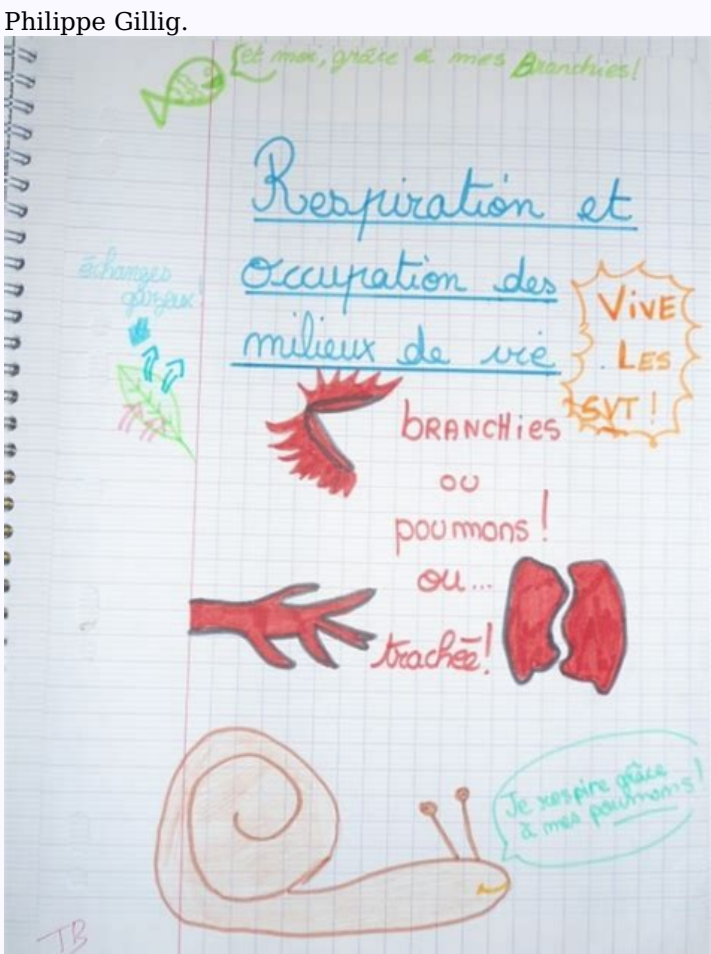 Philippe Gillig.
et moi, grâce à mes Branchies!
Respiration et
occupation des
milieux de vie
échanges
gazeux!
VIVE
LES
SVT!
bRANCHies
ou
poumons!
ou...
trachée!
Je respire grâce
à mes poumons!
TB